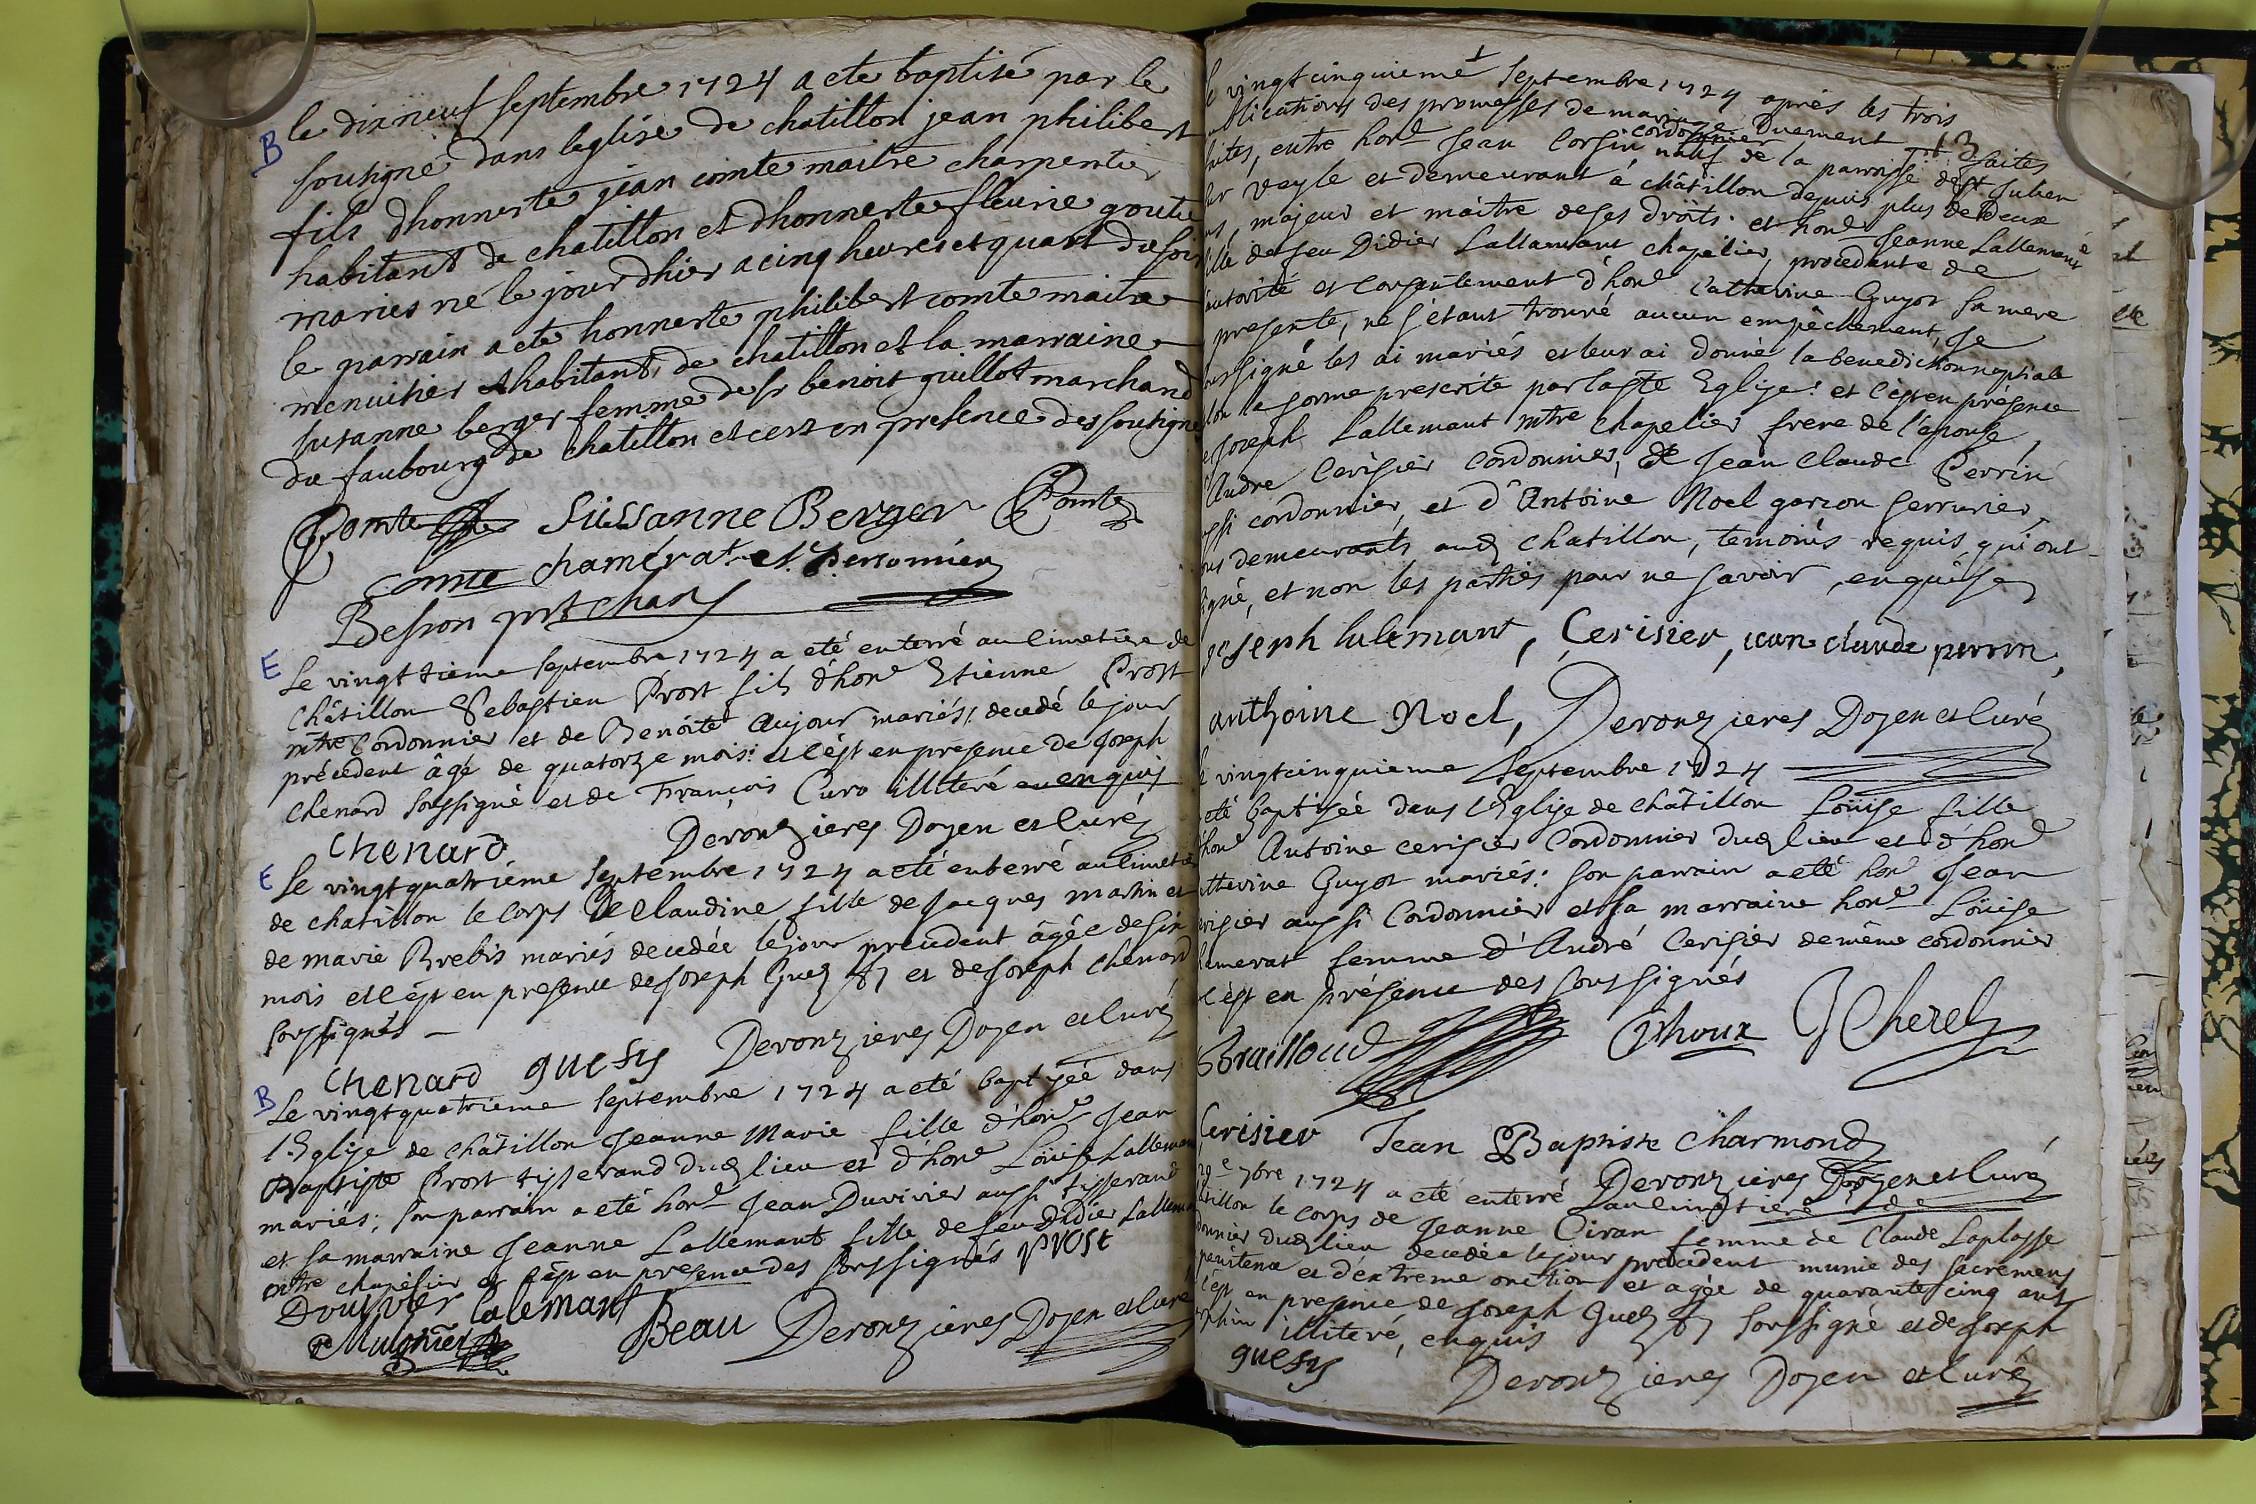 B
le dix neuf septembre 1724 a ete baptisé par le
sousigné dans leglise de chatillon jean philibert
fils dhonneste jean comte maitre charpentie
habitant de chatillon et dhonneste fleurie goute
mariés né le jour dhier a cinq heures et quart du soir
le parrain a ete honneste philibert comte maitre
menuisier habitant de chatillon et la marraine
susanne berger femme de sr benoit guillot marchand
du faubourg de chatillon et cest en presence des sousignes
Comte Sussanne Berger Comte
comte chamerat et Personnier
Besson prt
E
Le vingttieme septembre 1724 a eté enterré au cimetiere de
Châtillon Sebastien Prost fils d'hone Etienne Prost
mtre Cordonnier et de Benoite Aujour mariés, decedé le jour
précedent âgé de quatorze mois: et c'est en presence de Joseph
chenard soussigné et de François Curo illiteré enquis
Chenard Deronzieres Doyen et Curé
E
Le vingtquatriéme Septembre 1724 a eté enterré au cimetie
de chatillon le corps de Claudine fille de Jacques martin et
de marie Brebis mariés decedée le jour precedent âgée de six
mois et c'est en presence de Joseph Guesy et de Joseph Chenard
soussignés
Chenard guesy Deronzieres Doyen et Curé
B
Le vingtquatrieme Septembre 1724 a eté baptisée dans
l'Eglise de châtillon Jeanne Marie fille d'hone Jean
Baptiste Prost tisserand dud lieu et d'hone Loüise Lalleman
mariés; son parrain a eté hone Jean Duvivier aussi tisserand
et sa marraine Jeanne Lallemant fille de feu Didier Lalleman
mtre chapelier et c'est en presence des soussignés Prost
Douivier lalemant
Mulgnier Beau Deronzieres Doyen et Curé
le vingtcinquieme Septembre 1724 après les trois
ublications des promesses de mariage Duement faites
entre hone Jean Corsin cordonnier natif de la paroisse de st Julien
ur veyle et demeurant à châtillon depuis plus de deux
ns, majeur et maitre de ses droits. et hone Jeanne Lallemant
lle de feu Didier Lallemant chapelier, procedante de
autorité et consentement d'hone Catherine Guyot sa mere
presente, ne s'étant trouvé aucun empêchement, Je
soussigné les ai mariés et leur ai donné la benediction nuptiale
lon la forme prescrite par la ste Eglise: et c'est en présence
e Joseph Lallemant mtre chapelier frere de l'epouse,
Andre Cerisier cordonnier, de Jean Claude Perrin
ussi cordonnier, et d'Antoine Noel garçon serrurier,
ous demeurants aud Chatillon, temoins requis qui ont
igné, et non les parties pour ne savoir, enquises
joseph lalemant, Cerisier, jean claude perrin,
anthoine Noel, Deronzieres Doyen et Curé
le vingtcinquieme Septembre 1724
eté baptisée dans l'Eglise de châtillon Loüise fille
d'hone Antoine cerisier Cordonnier dud lieu et d'hone
atherine Guyot mariés: son parrain a eté hone Jean
erisier aussi Cordonnier et sa marraine hone Loüise
hamerat femme d'André Cerisier de même cordonnier
c'est en présence des soussignés
Brailloud J Cherel
Cerisier Jean Baptiste Charmond
Deronzieres Doyen et Curé
29e 7bre 1724 a eté enterré au cimetiere de
atillon le corps de Jeanne Ciran femme de Claude Laplasse
donnier dud lieu decedée le jour precedent munie des sacremens
penitence et d'extreme onction et agée de quarante cinq ans
c'est en presence de Joseph Guesy soussigné et de Joseph
illiteré, enquis
guesy Deronzieres Doyen et Curé